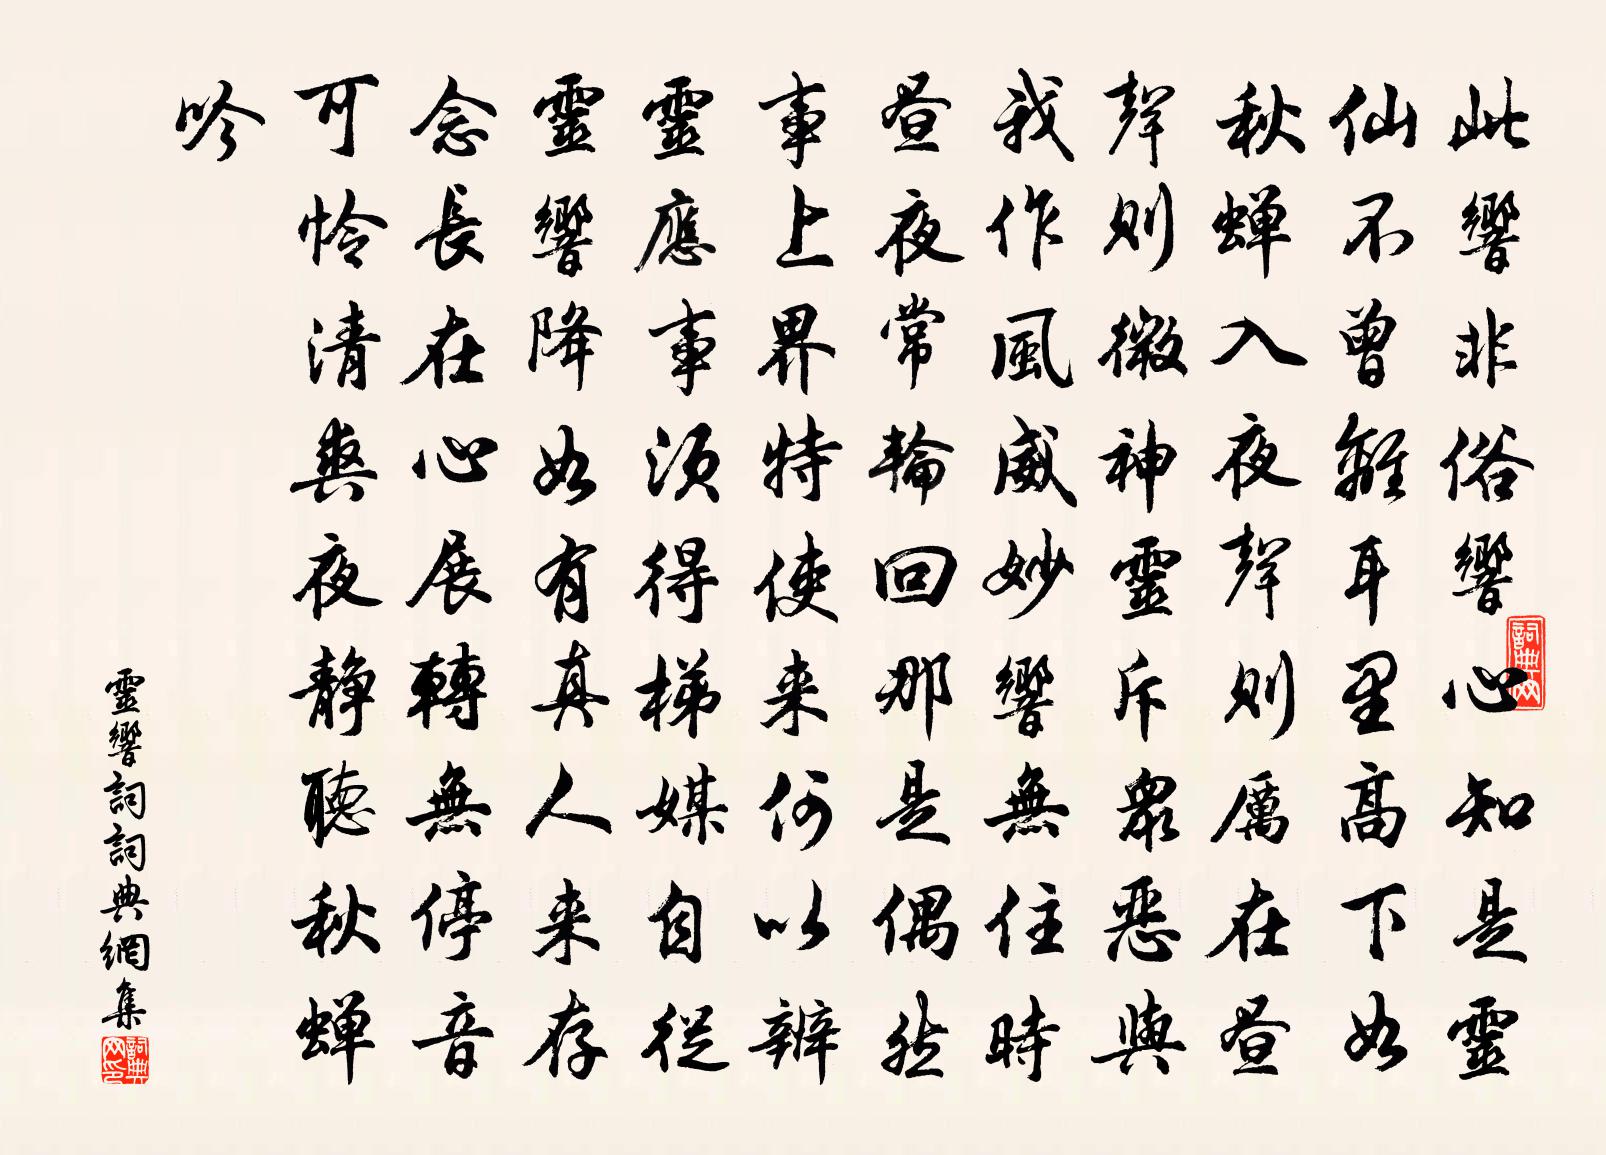 此響非俗響心知是靈
仙不曾離耳里高下如
秋蝉入夜聲則厲在昼
聲則微神靈斥眾惡與
我作風威妙響無住時
昼夜常輪回那是偶然
事上界特使来何以辨
靈應事須得梯媒自從
靈響降如有真人来存
念長在心展轉無停音
可怜清爽夜静聽秋蝉
吟
靈響詞詞典網集
詞典网